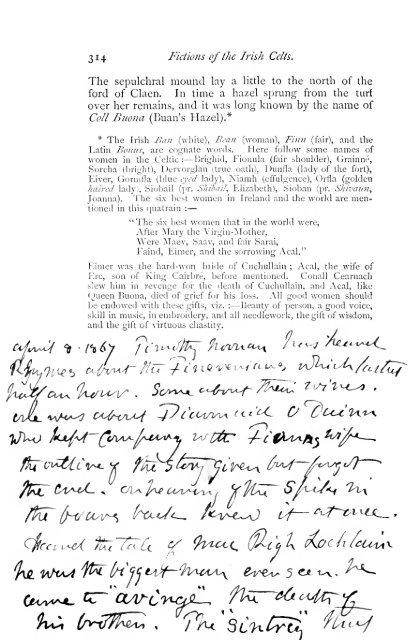 314 Fictions of the Irish Celts.
The sepulchral mound lay a little to the north of the
ford of Claen. In time a hazel sprung from the turf
over her remains, and it was long known by the name of
Coll Buona (Buan's Hazel).*
* The Irish Ban (white), Bean (woman), Finn (fair), and the
Latin Bonus, are cognate words. Here follow some names of
women in the Celtic:—Brighid, Fionula (fair shoulder), Grainné,
Sorcha (bright), Dervorglan (true oath), Dunfla (lady of the fort),
Eiver, Gormfla (blue eyed lady), Niamh (effulgence), Orfla (golden
haired lady), Siobail (pr. Shibail, Elizabeth), Sioban (pr. Shivaun,
Joanna). The six best women in Ireland and the world are men-
tioned in this quatrain:—
"The six best women that in the world were,
After Mary the Virgin-Mother,
Were Maev, Saav, and fair Sarai,
Faind, Eimer, and the sorrowing Acal."
Eimer was the hard-won bride of Cuchullain; Acal, the wife of
Erc, son of King Cairbré, before mentioned. Conall Cearnach
slew him in revenge for the death of Cuchullain, and Acal, like
Queen Buona, died of grief for his loss. All good women should
be endowed with these gifts, viz.:—Beauty of person, a good voice,
skill in music, in embroidery, and all needlework, the gift of wisdom,
and the gift of virtuous chastity.
April 8. 1867 Timothy Noonan has heard
Rhymes about the which lasted
half an hour. Some about their wives.
one was about Diarmaid O'Duinn
who kept company with wife
the outline of the story given but forgot
the end. on hearing of the spikes in
the boars back knew it at once.
Heard the tale of Mac Righ Lochlain
he was the biggest man ever seen. he
came to "avinge" the death of
his brothers. The "sintry" that